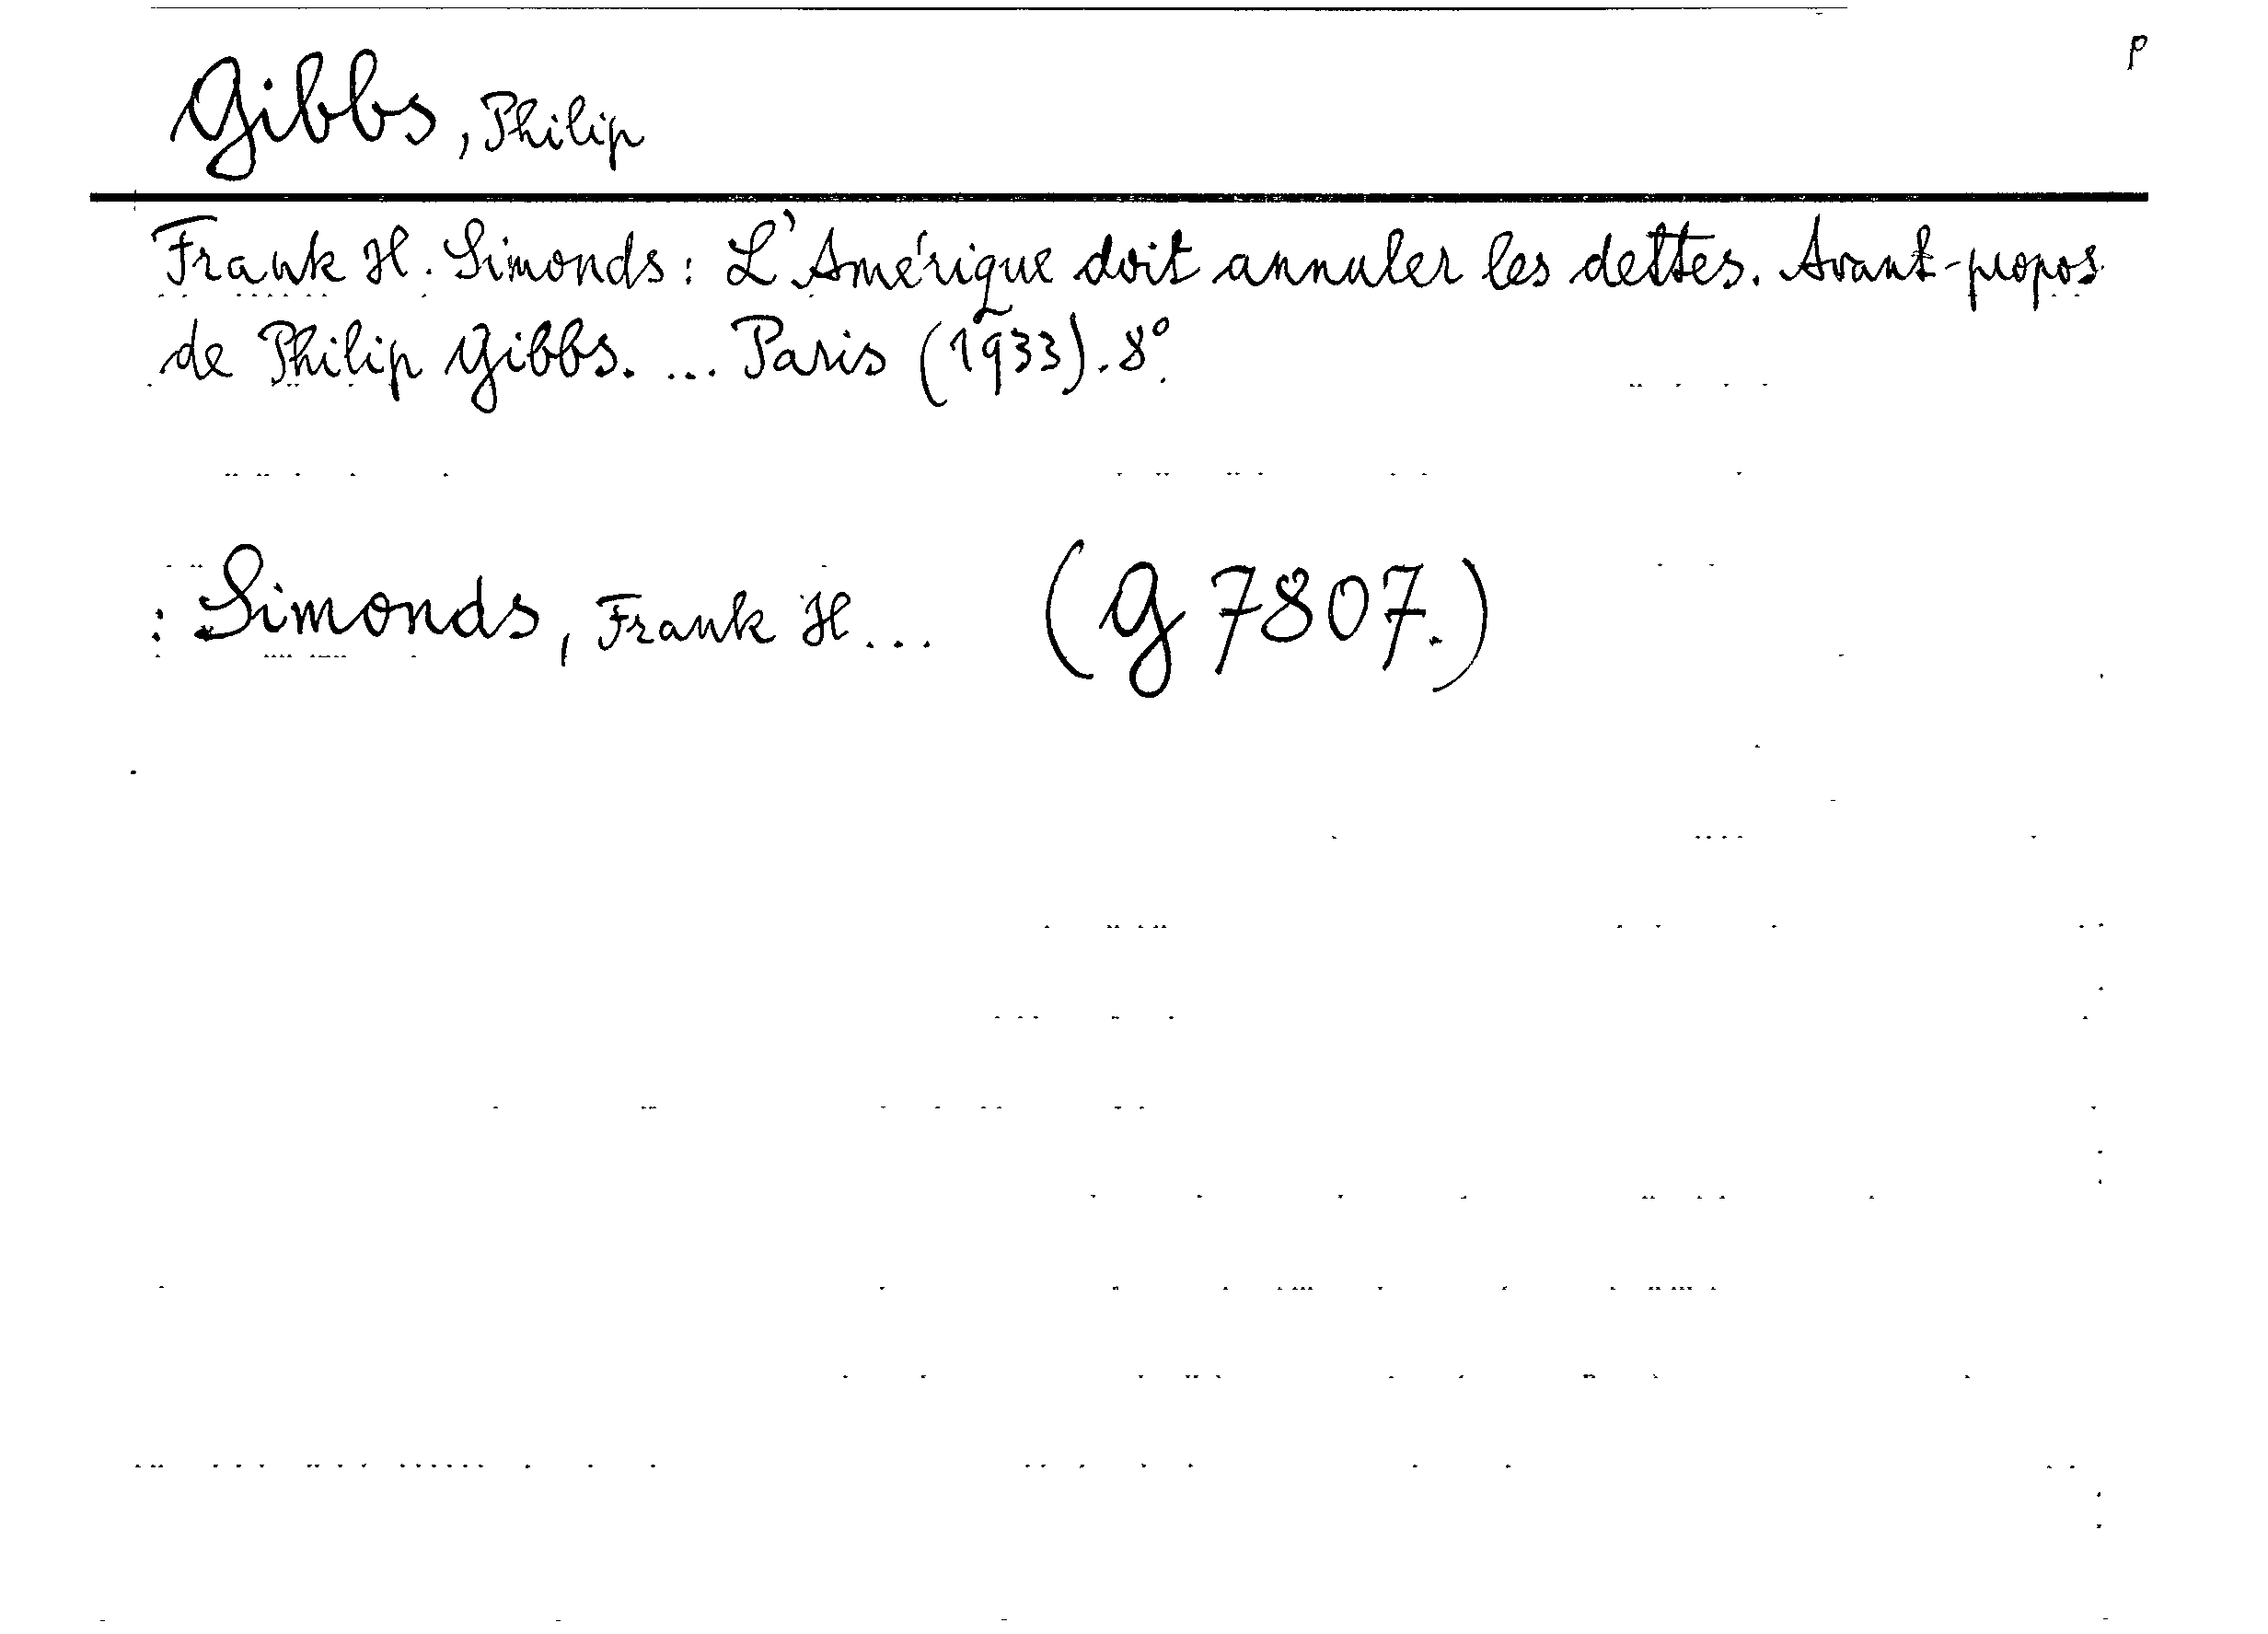 p
Gibbs, Philip
Frank H. Simonds: L'Amérique doit annuler les dettes. Avant-propos
de Philip Gibbs. ... Paris (1933). 8°.
: Simonds, Frank H... (G 7807.)